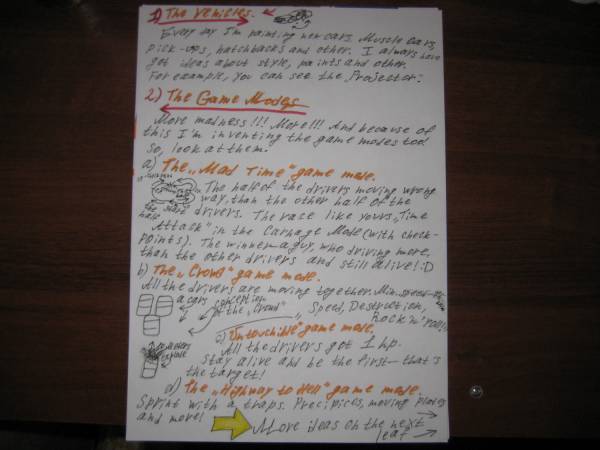 1) The Vehicles.
Every day I'm painting new cars. Muscle cars,
pick-ups, hatchbacks and other. I always have
got ideas about style, paints and other.
For example, you can see the Projector:
2) The Game Modes
More madness!!! More!!! And because of
this I'm inventing the game modes too!
So, look at them:
a) The „Mad Time" game mode.
The half of the drivers moving wrong
way, than the other half of the
drivers. The race like yours „Time
Attack" in the Carnage Mode (with check-
points). The winner - a guy, who driving more,
than the other drivers and still alive! :D
The half
start
b) The „Crowd" game mode.
All the drivers are moving together. Min. speed
a cars
conception of the „Crowd"
Speed, Destruction,
Rock'n'Roll!!
c) „Untouchible" game mode.
All the drivers got 1 hp.
Stay alive and be the first - that's
the target!
d) The „Highway to Hell" game mode.
Sprint with a traps. Precipices, moving plates
and more!
More ideas on the next
leaf